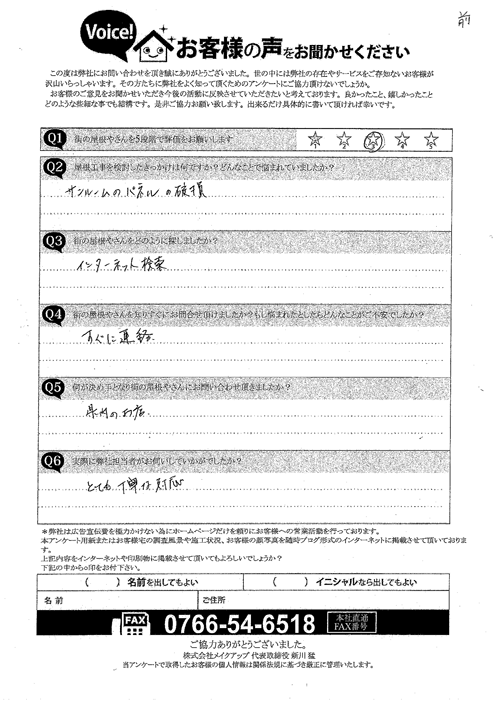 前
Voice!
お客様の声をお聞かせください
この度は弊社にお問い合わせを頂き誠にありがとうございました。世の中には弊社の存在やサービスをご存知ないお客様が
沢山いらっしゃいます。その方たちに弊社をよく知って頂くためのアンケートにご協力頂けないでしょうか。
お客様のご意見をお聞かせいただき今後の活動に反映させていただきたいと考えております。良かったこと、嬉しかったこと
どのような些細な事でも結構です。是非ご協力お願い致します。出来るだけ具体的に書いて頂ければ幸いです。
Q1 街の屋根やさんを5段階で評価をお願いします
1 2 3 4 5
Q2 屋根工事を検討したきっかけは何ですか？どんなことで悩まれていましたか？
サンルームのパネルの破損
Q3 街の屋根やさんをどのように探しましたか？
インターネット検索
Q4 街の屋根やさんを知りすぐにお問合せ頂けましたか？もし悩まれたとしたらどんなことがご不安でしたか？
すぐに連絡
Q5 何が決め手となり街の屋根やさんにお問い合わせ頂きましたか？
県内のお店
Q6 実際に弊社担当者がお伺いしていかがでしたか？
とても丁寧な対応
＊弊社は広告宣伝費を極力かけない為にホームページだけを頼りにお客様への営業活動を行っております。
本アンケート用紙またはお客様宅の調査風景や施工状況、お客様の顔写真を随時ブログ形式のインターネットに掲載させて頂いておりま
す。
上記内容をインターネットや印刷物に掲載させて頂いてもよろしいでしょうか？
下記の中から○印をお付け下さい。
（　　）名前を出してもよい （　　）イニシャルなら出してもよい
名前 ご住所
FAX 0766-54-6518 本社直通 FAX番号
ご協力ありがとうございました。
株式会社メイクアップ 代表取締役 新川 猛
当アンケートで取得したお客様の個人情報は関係法規に基づき厳正に管理いたします。